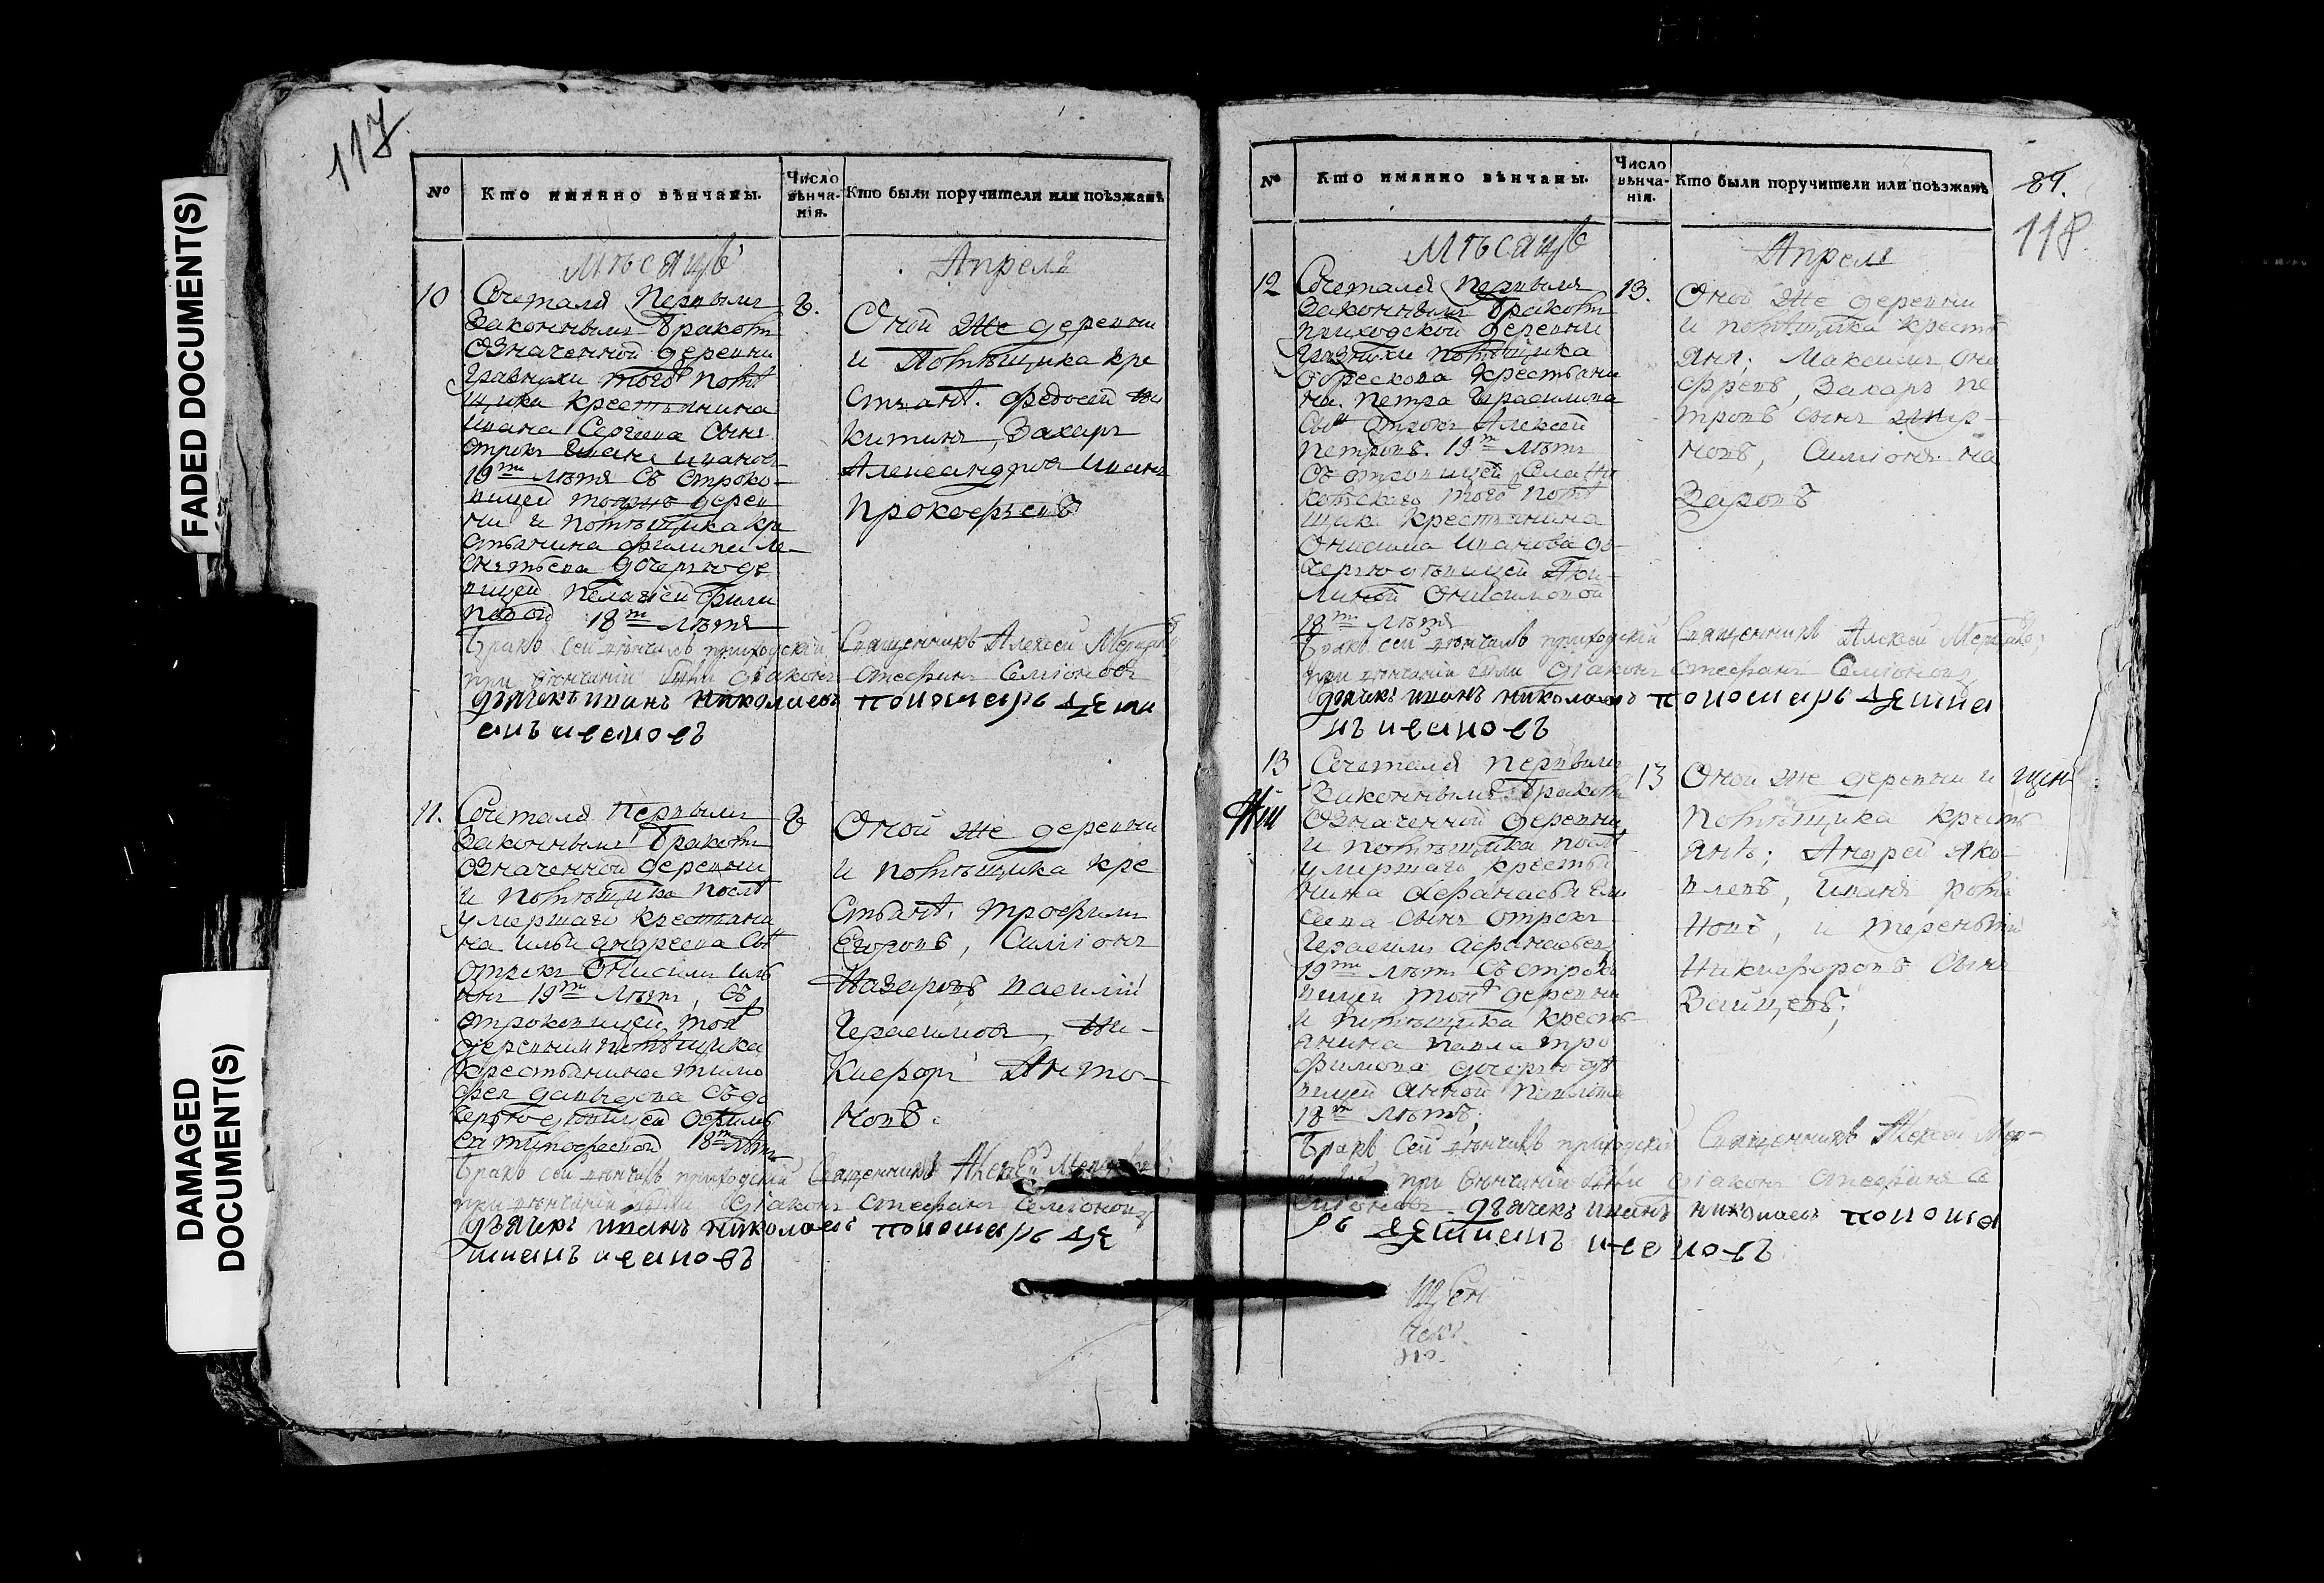 FADED DOCUMENT(S)
DAMAGED
DOCUMENT(S)
117
№ Кто имянно вѣнчаны. Число вѣнча-нія. Кто были поручители или поѣзжанѣ
Мѣсяцъ Апрель
10
Сочетался Первымъ
Законнымъ бракомъ
Означенной деревни
того помѣ
щика крестьянина
Ивана Сергѣева Сынъ
отрокъ Иванъ Ивановъ
19ти лѣтъ Съ отроко-
вицей тояжъ дерев
ни и помѣщика кре
стьянина Филипа
дочерью дѣ
вицей Пелагіей Фили
повой 18ти лѣтъ
8.
Оной же деревни
и Помѣщика кре
стьянѣ. Федосей Ни
китинъ, Захаръ
Александровъ Иванъ
Прокофьевъ
Бракъ сей вѣнчалъ приходскій Священникъ Алексей
при вѣнчаніи были діаконъ Стефанъ Семіоновъ
дьячекъ Иванъ Николаевъ пономарь
11.
Сочетался Первымъ
Законнымъ бракомъ
Означенной деревни
и помѣщика послѣ
умершаго крестьяни
на Ильи Андреева Сынъ
отрокъ Онисимъ Иль
инъ 19ти лѣтъ, Съ
отроковицей тоя
деревни и помѣщика
крестьянина Тимо
фея Давыдова Съ до
черью дѣвицей
Тимофеевой 18ти лѣтъ
8
Оной же деревни
и помѣщика кре
стьянѣ, Трофимъ
Егоровъ, Симіонъ
Назаровъ Василій
Герасимовъ, Ни-
кифоръ Анто-
новъ.
Бракъ сей вѣнчалъ приходскій Священникъ Алексей
при вѣнчаніи были діаконъ Стефанъ Семіоновъ
дьячекъ Иванъ Николаевъ пономарь
№ Кто имянно вѣнчаны. Число вѣнча-нія. Кто были поручители или поѣзжанѣ
89.
118
Мѣсяцъ Апрель
12
Сочетался Первымъ
Законнымъ бракомъ
приходской деревни
помѣщика
Обрескова крестьяни
на Петра Герасимова
сынъ отрокъ Алексей
Петровъ. 19ти лѣтъ
съ отроковицей
того помѣ
щика крестьянина
Онисима Иванова до
черью дѣвицей Аку-
линой Онисимовой
18ти лѣтъ
13.
Оной же деревни
и помѣщика кресть
янѣ; Максимъ Они
Захаръ Пе
тровъ сынъ
Симіонъ На
заровъ
Бракъ сей вѣнчалъ приходскій Священникъ Алексей
при вѣнчаніи были діаконъ Стефанъ Семіоновъ
дьячекъ Иванъ Николаевъ пономарь
13
Сочетался Первымъ
Законнымъ бракомъ
Означенной деревни
и помѣщика послѣ
умершаго крестья
нина Афанасья
сынъ отрокъ
Герасимъ Афанасьевъ
19ти лѣтъ съ отроко
вицей той деревни
и помѣщика кресть
янина Павла Тро
фимова дочерью дѣ
вицей Анной Павловой
18ти лѣтъ;
13
Оной же деревни и
помѣщика кресть
янѣ; Андрей Яко-
влевъ, Иванъ Рома
новъ, и Терентій
Никифоровъ Сынъ
Бракъ сей вѣнчалъ приходскій Священникъ Алексей
при вѣнчаніи были діаконъ Стефанъ Се
міоновъ дьячекъ Иванъ Николаевъ понома
рь